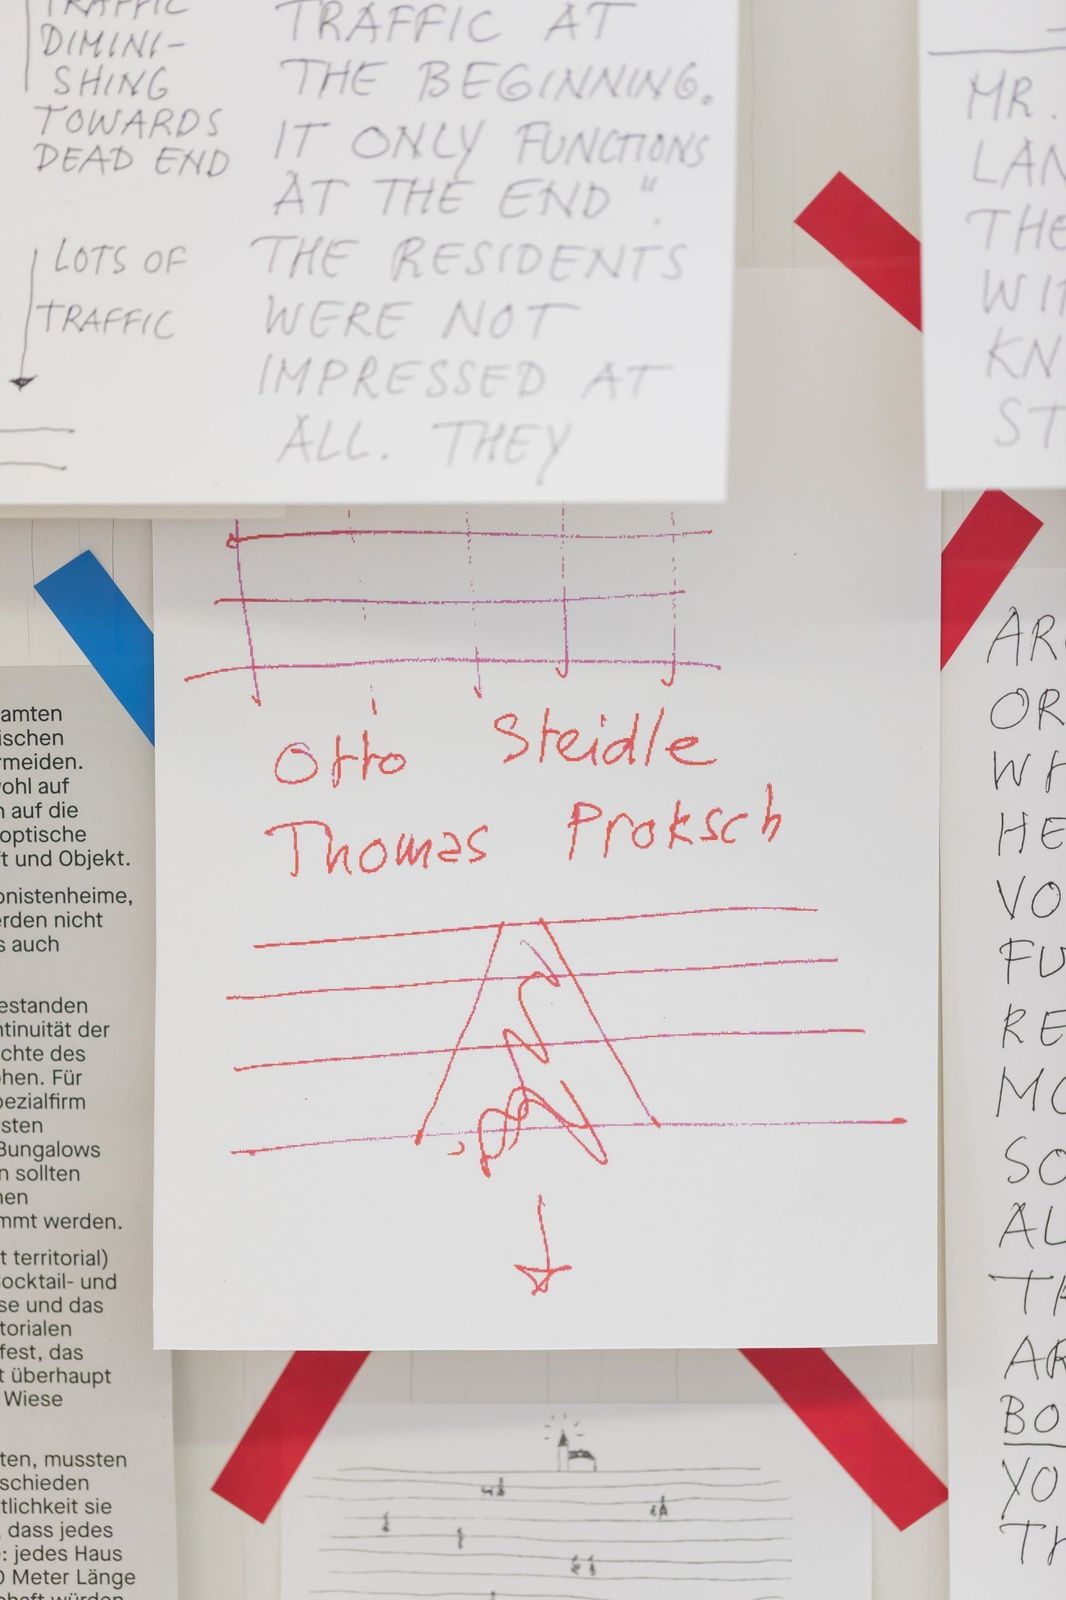 TRAFFIC
DIMINI-
SHING
TOWARDS
DEAD END
LOTS OF
TRAFFIC
TRAFFIC AT
THE BEGINNING.
IT ONLY FUNCTIONS
AT THE END".
THE RESIDENTS
WERE NOT
IMPRESSED AT
ALL. THEY
MR.
LAN
THE
WIT
KN
ST
Otto Steidle
Thomas Proksch
amten
ischen
rmeiden.
wohl auf
n auf die
optische
ft und Objekt.
onistenheime,
erden nicht
s auch
estanden
ntinuität der
chte des
ohen. Für
pezialfirm
sten
Bungalows
n sollten
nen
mmt werden.
t territorial)
Cocktail- und
se und das
torialen
fest, das
t überhaupt
Wiese
ten, mussten
schieden
tlichkeit sie
, dass jedes
: jedes Haus
0 Meter Länge
chaft würden
ARC
OR
WH
HE
VO
FU
RE
MO
SO
AL
TH
AR
BO
YO
TH